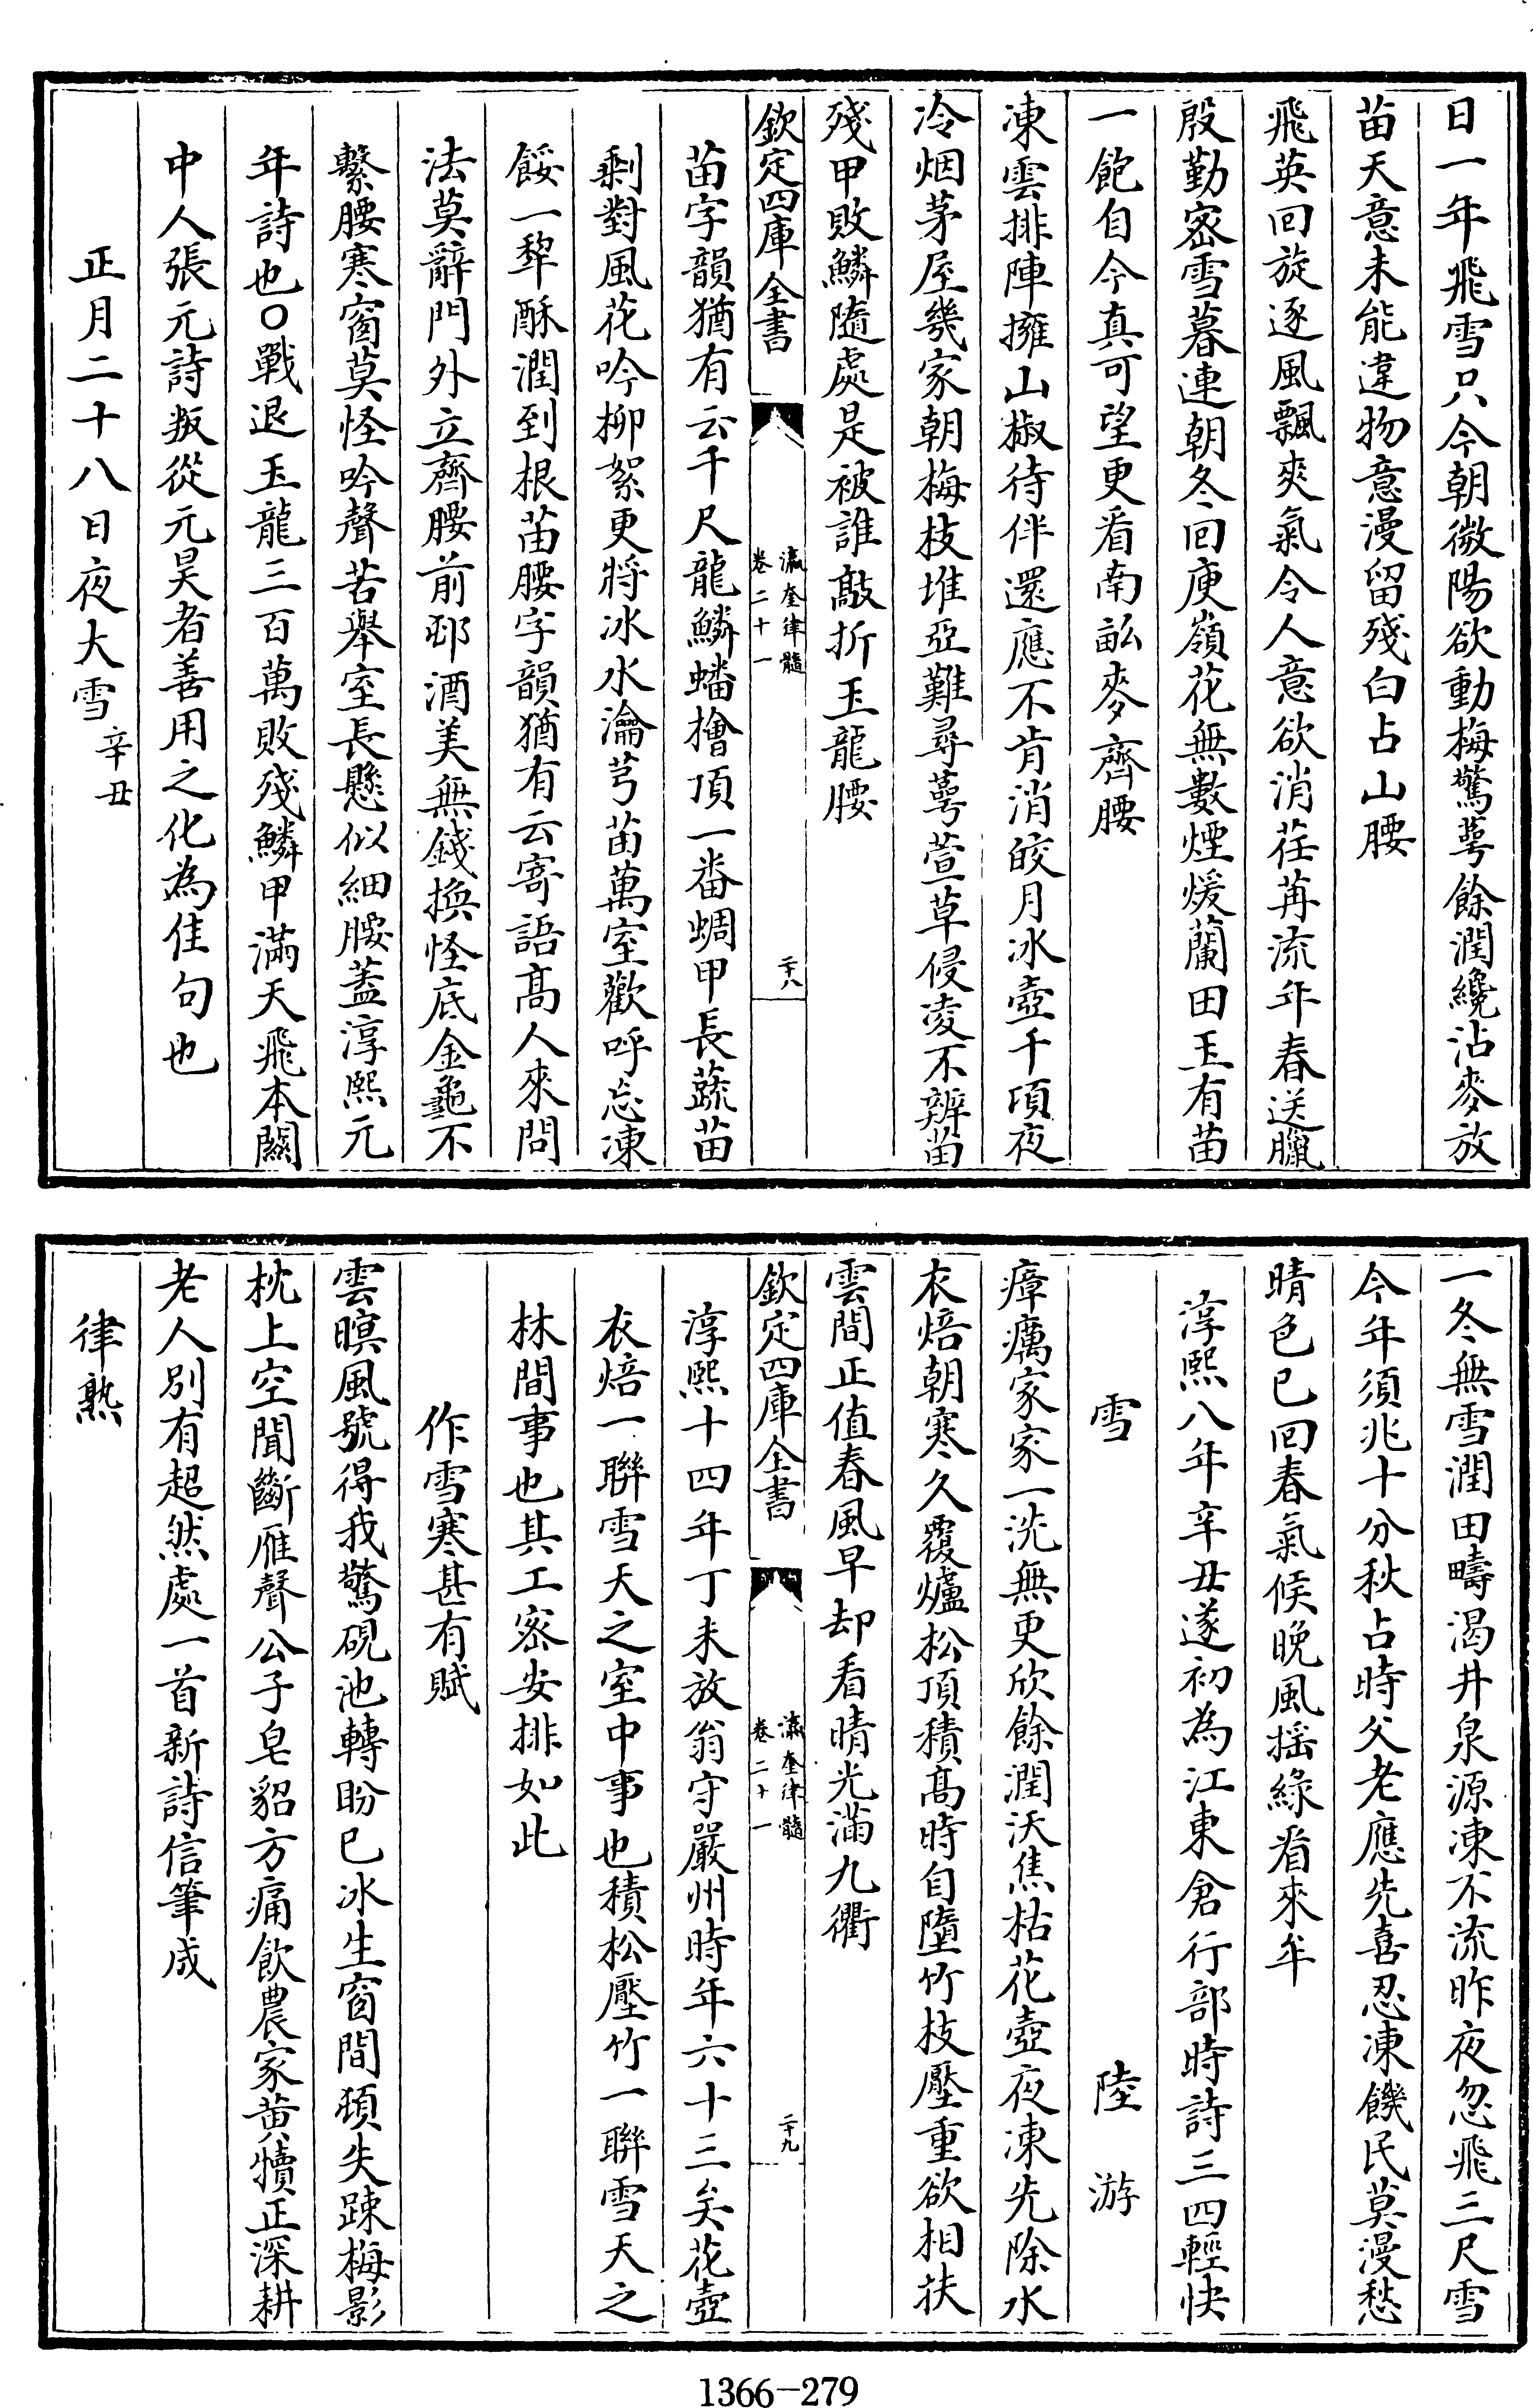 日一年飛雪只今朝微陽欲動梅驚萼餘潤纔沾麥放
苗天意未能違物意漫留殘白占山腰
飛英回旋逐風飄爽氣令人意欲消荏苒流年春送臘
殷勤密雪暮連朝冬回庾嶺花無數煙煖蘭田玉有苗
一飽自今真可望更看南畝麥齊腰
凍雲排陣擁山椒待伴還應不肯消皎月冰壺千頃夜
冷烟茅屋幾家朝梅枝堆亞難尋萼萱草侵凌不辨苗
殘甲敗鱗隨處是被誰敲折玉龍腰
欽定四庫全書
瀛奎律髓
卷二十一
二十八
苗字韻猶有云千尺龍鱗蟠檜頂一番蜩甲長蔬苗
剩對風花吟柳絮更將冰水瀹芎苗萬室歡呼忘凍
餒一犂酥潤到根苗腰字韻猶有云寄語高人來問
法莫辭門外立齊腰前邨酒美無錢換怪底金龜不
繫腰寒窗莫怪吟聲苦舉室長懸似細腰蓋淳熙元
年詩也○戰退玉龍三百萬敗殘鱗甲滿天飛本關
中人張元詩叛從元昊者善用之化為佳句也
正月二十八日夜大雪辛丑
一冬無雪潤田疇渴井泉源凍不流昨夜忽飛三尺雪
今年須兆十分秋占時父老應先喜忍凍饑民莫漫愁
晴色已回春氣候晚風搖綠看來牟
淳熙八年辛丑遂初為江東倉行部時詩三四輕快
雪
陸游
瘴癘家家一洗無更欣餘潤沃焦枯花壺夜凍先除水
衣焙朝寒久覆爐松頂積高時自墮竹枝壓重欲相扶
雲間正值春風早却看晴光滿九衢
欽定四庫全書
瀛奎律髓
卷二十一
二十九
淳熙十四年丁未放翁守嚴州時年六十三矣花壺
衣焙一聯雪天之室中事也積松壓竹一聯雪天之
林間事也其工密安排如此
作雪寒甚有賦
雲暝風號得我驚硯池轉盼已冰生窗間頓失踈梅影
枕上空聞斷雁聲公子皂貂方痛飲農家黃犢正深耕
老人別有超然處一首新詩信筆成
律熟
1366-279